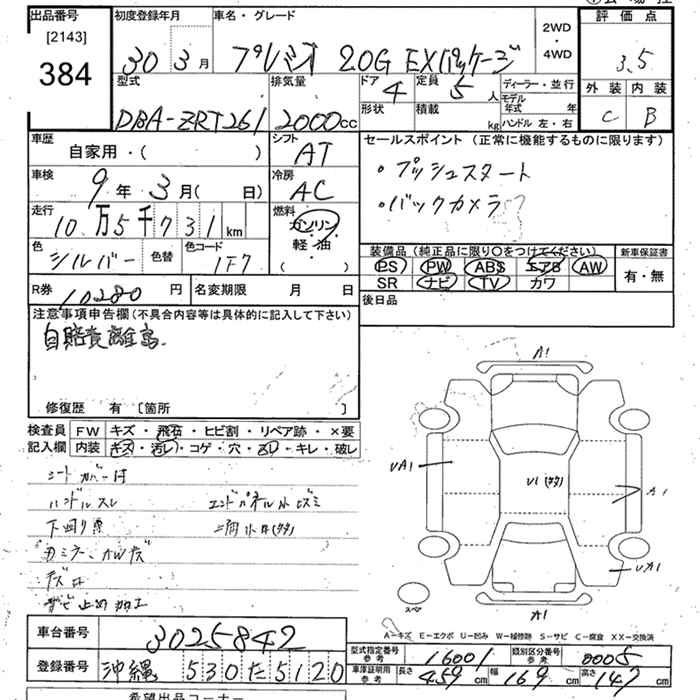 出品番号
[2143]
384
初度登録年月
30 3月
車名・グレード
プレミオ 20G EXパッケージ
2WD
・
4WD
評価点
3.5
外装 内装
C B
型式
DBA-ZRT261
排気量
2000cc
ドア 4
定員 5人
形状
積載 kg
ディーラー・並行
モデル年式 年
ハンドル 左・右
車歴
自家用・( )
シフト
AT
セールスポイント (正常に機能するものに限ります)
・プッシュスタート
・バックカメラ
車検
9年 3月( 日)
冷房
AC
走行
10万5千731km
燃料
ガソリン
軽・油
( )
色
シルバー
色替
色コード
1F7
装備品(純正品に限り○をつけてください)
PS PW ABS エアB AW
SR ナビ TV カワ
新車保証書
有・無
R券
10280円
名変期限 月 日
後日品
注意事項申告欄(不具合内容等は具体的に記入して下さい)
自賠責離島
修復歴 有 [箇所 ]
検査員
記入欄
FW キズ・飛石・ヒビ割・リペア跡・×要
内装 キズ・汚レ・コゲ・穴・凹・キレ・破レ
シートカバー付
ハンドルスレ
下回り
A1
UA1
U1
A1
UA1
A1
スペア
A-キズ E-エクボ U-凹み W-補修跡 S-サビ C-腐食 XX-交換済
車台番号
3025842
登録番号
沖縄 530 た 5120
型式指定番号
参考
16001
類別区分番号
参考
0005
車庫証明用
参考
長さ 459cm
幅 169cm
高さ 147cm
希望出品コーナー